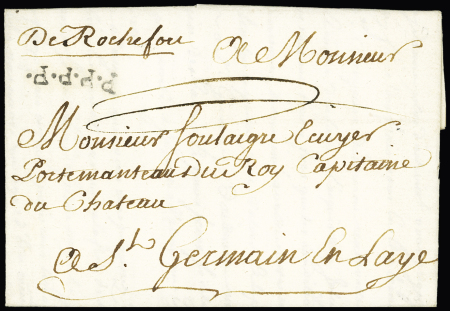 De Rochefou
A Monsieur
P.P.P.P.
Monsieur foulaigre Ecuyer
Portemanteau Du Roy Capitaine
du Chateau
A St. Germain En Laye